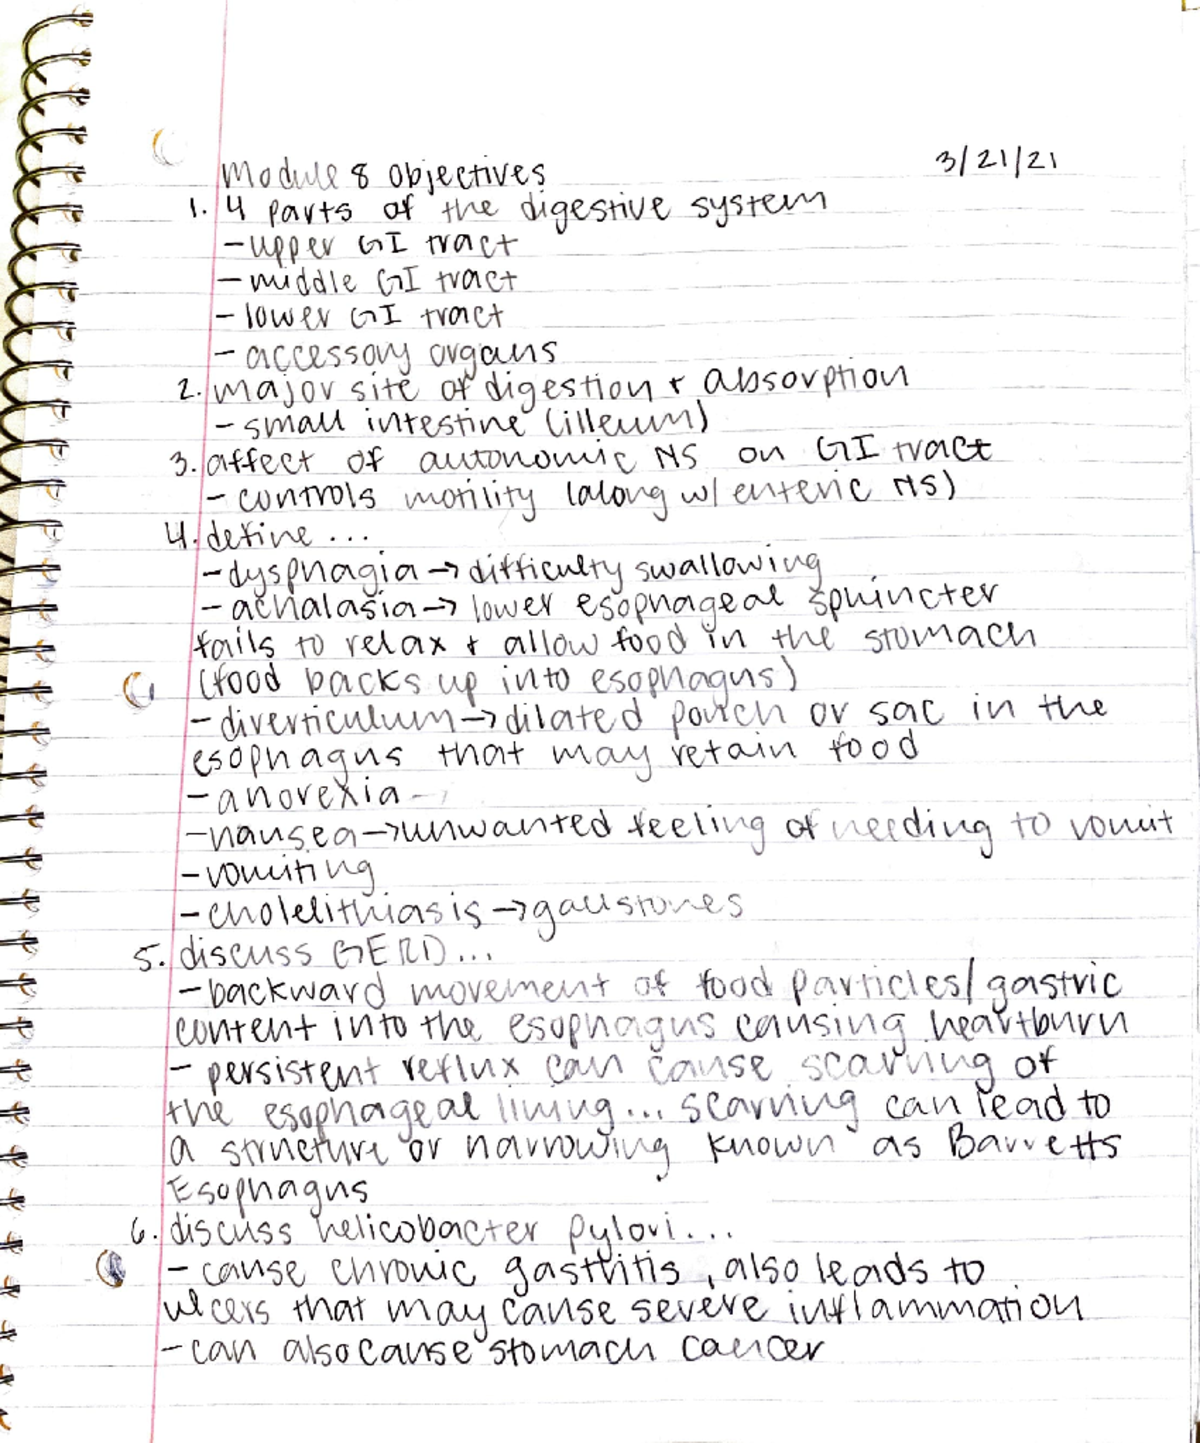 Module 8 Objectives 3/21/21
1. 4 parts of the digestive system
- upper GI tract
- middle GI tract
- lower GI tract
- accessory organs
2. major site of digestion + absorption
- small intestine (illeum)
3. affect of autonomic NS on GI tract
- controls motility (along w/ enteric NS)
4. define ...
- dysphagia → difficulty swallowing
- achalasia → lower esophageal sphincter
fails to relax + allow food in the stomach
(food backs up into esophagus)
- diverticulum → dilated pouch or sac in the
esophagus that may retain food
- anorexia -
- nausea → unwanted feeling of needing to vomit
- vomiting
- cholelithiasis → gallstones
5. discuss GERD...
- backward movement of food particles/gastric
content into the esophagus causing heartburn
- persistent reflux can cause scarring of
the esophageal lining... scarring can lead to
a structure or narrowing known as Barretts
Esophagus
6. discuss helicobacter pylori...
- cause chronic gastritis, also leads to
ulcers that may cause severe inflammation
- can also cause stomach cancer